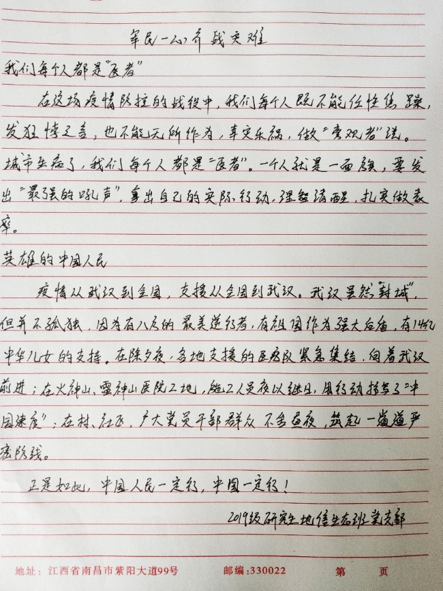 军民一心 齐战灾难
我们每个人都是“医者”
在这场疫情防控的战役中，我们每个人既不能任性焦躁，
发狂情之言，也不能无所作为，幸灾乐祸，做“旁观者”说。
城市生病了，我们每个人都是“医者”。一个人就是一面旗，要发
出“最强的吼声”，拿出自己的实际行动，理智清醒，扎实做表
率。
英雄的中国人民
疫情从武汉到全国，支援从全国到武汉。武汉虽然“封城”，
但并不孤独，因为有八方的最美逆行者，有祖国作为强大后盾，有14亿
中华儿女的支持。在除夕夜，各地支援的医疗队紧急集结，向着武汉
前进；在火神山、雷神山医院工地，施工人员夜以继日，用行动描写了“中
国速度”；在村、社区，广大党员干部群众不舍昼夜，筑起一道道严
密防线。
正是如此，中国人民一定行，中国一定行！
2019级研究生地信生态班党支部
地址：江西省南昌市紫阳大道99号 邮编:330022 第 页